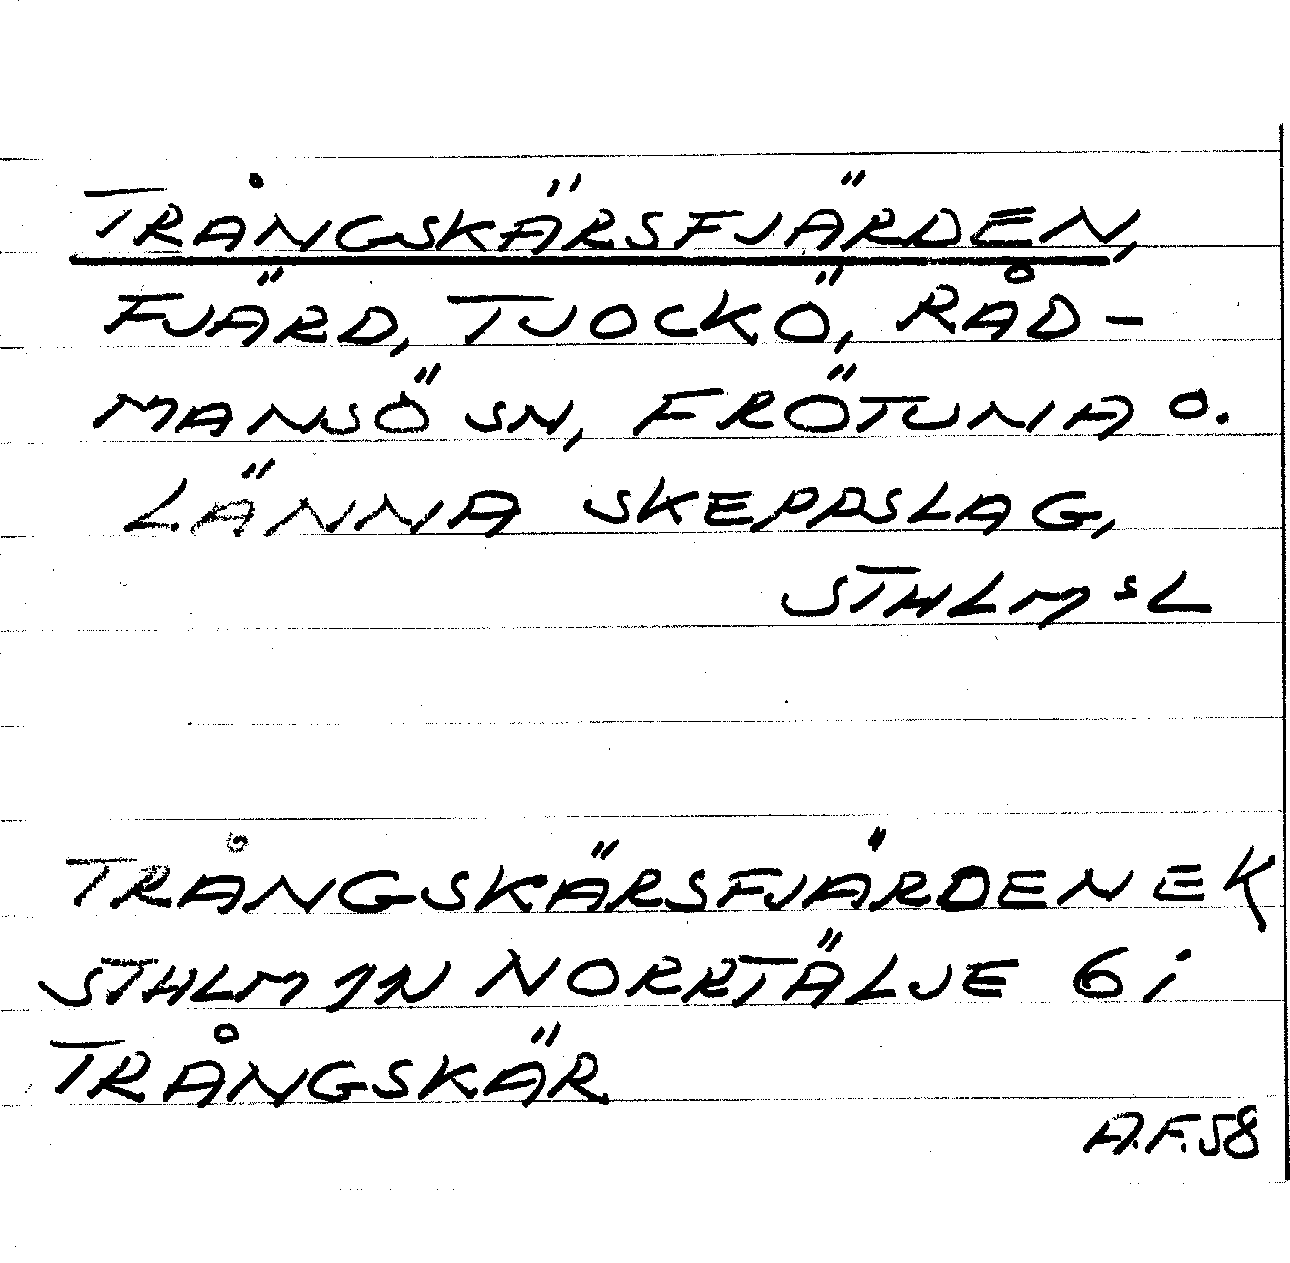 TRÅNGSKÄRSFJÄRDEN,
FJÄRD, TJOCKÖ, RÅD-
MANSÖ SN, FRÖTUNA O.
LÄNNA SKEPPSLAG,
STHLMSL
TRÅNGSKÄRSFJÄRDEN EK
STHLM 11N NORRTÄLJE 6i
TRÅNGSKÄR
A.F.58